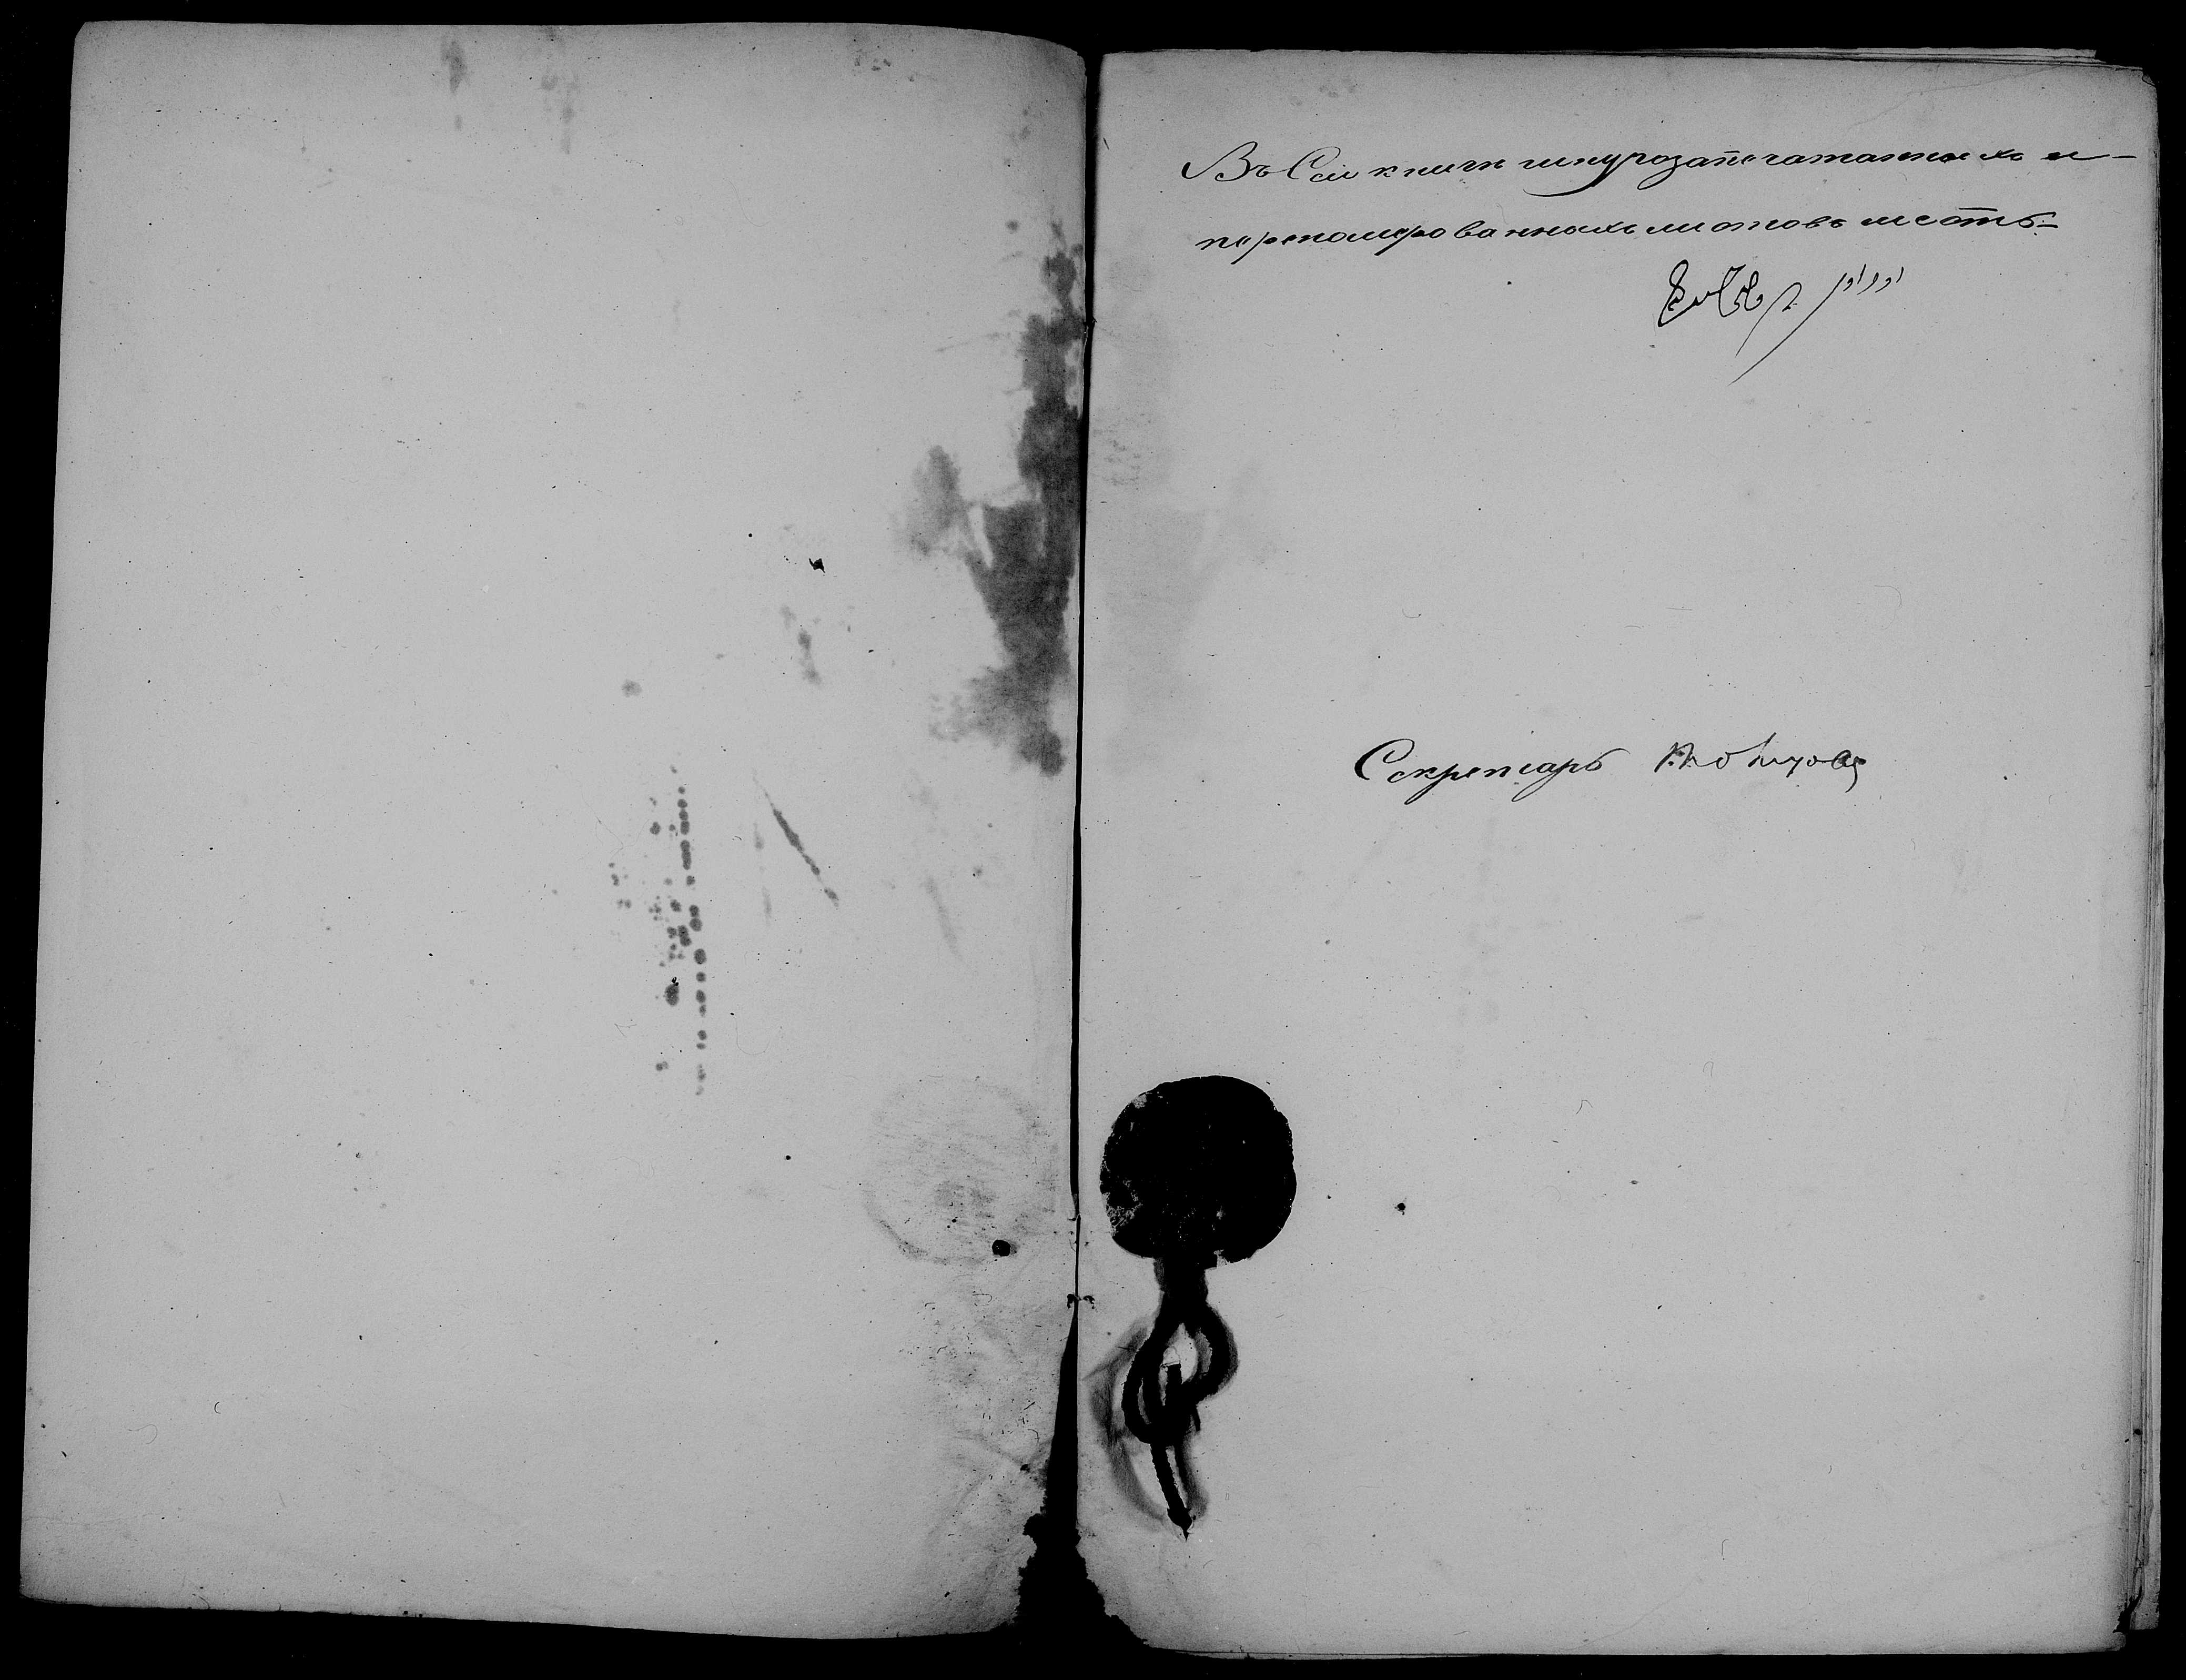 Въ Сей книги шнурозапечатанныхъ и-
переномерованныхъ листовъ шесть-
Секретарь